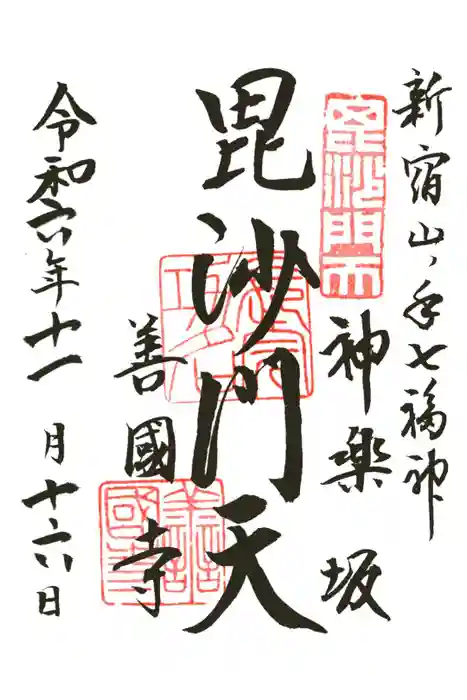 新宿山ノ手七福神
毘沙門天
神楽坂
毘沙門天
善國寺
令和六年十一月十六日